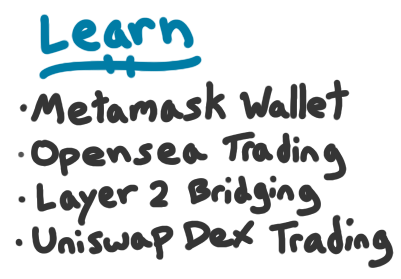 Learn
· Metamask Wallet
· Opensea Trading
· Layer 2 Bridging
· Uniswap Dex Trading